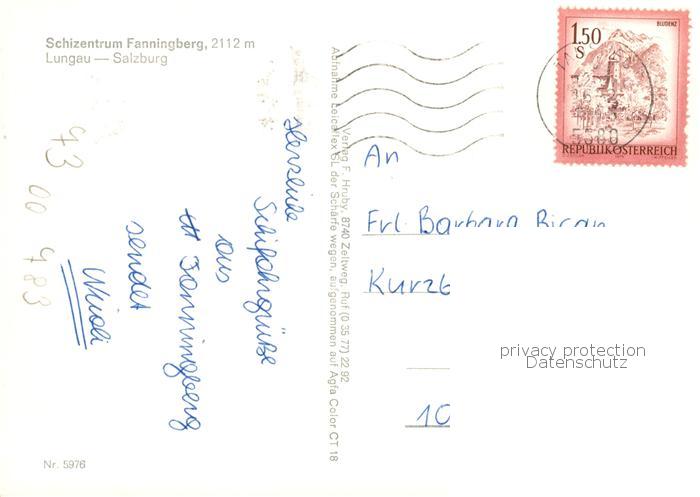 Schizentrum Fanningberg, 2112 m
Lungau — Salzburg
Herzliche
Schifahrgrüße
aus
Fanningberg
sendet
93 00 983
Nr. 5976
Verlag F. Hruby, 8740 Zeltweg, Ruf (0 35 77) 22 92
Aufnahme Leicaflex SL der Schärfe wegen, aufgenommen auf Agfa Color CT 18
BLUDENZ
1.50
S
REPUBLIK ÖSTERREICH
5580
An
Frl. Barbara
10
privacy protection
Datenschutz